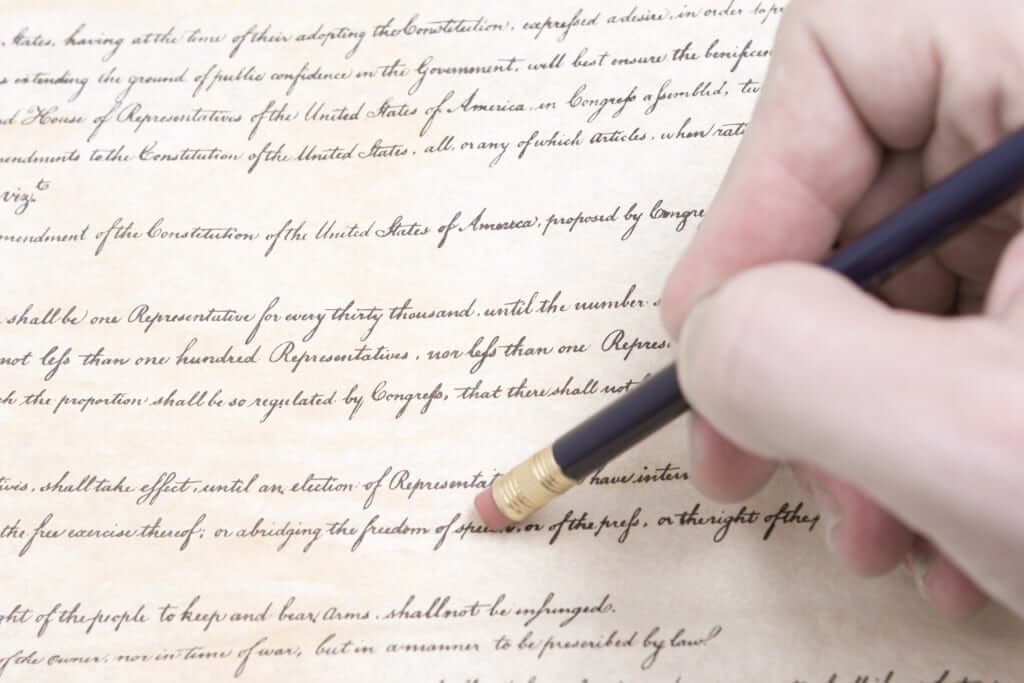 States, having at the time of their adopting the Constitution, expressed a desire, in order to
intending the ground of public confidence in the Government, will best ensure the beneficen
House of Representatives of the United States of America, in Congress assembled, tw
endments to the Constitution of the United States, all, or any of which Articles, when rati
viz.t
mendment of the Constitution of the United States of America, proposed by Congre
shall be one Representative for every thirty thousand, until the number
not less than one hundred Representatives, nor less than one Repres
the proportion shall be so regulated by Congress, that there shall not
shall take effect, until an election of Representat have interv
the free exercise thereof; or abridging the freedom of spee or of the press, or the right of the p
ght of the people to keep and bear arms, shall not be infringed.
of the owner, nor in time of war, but in a manner to be prescribed by law.